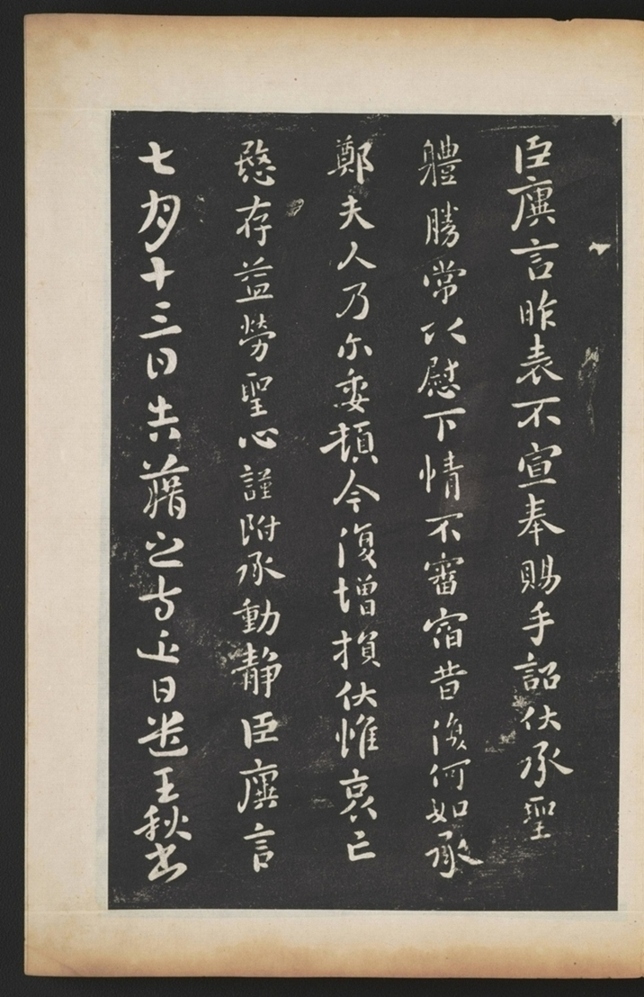 臣廙言昨表不宣奉賜手詔伏承聖
軆勝常以慰下情不審宿昔復何如承
鄭夫人乃尓委頓今復增損伏惟哀亡
愍存益勞聖心謹附承動靜臣廙言
七月十三日告藉之等近日遣王秋書